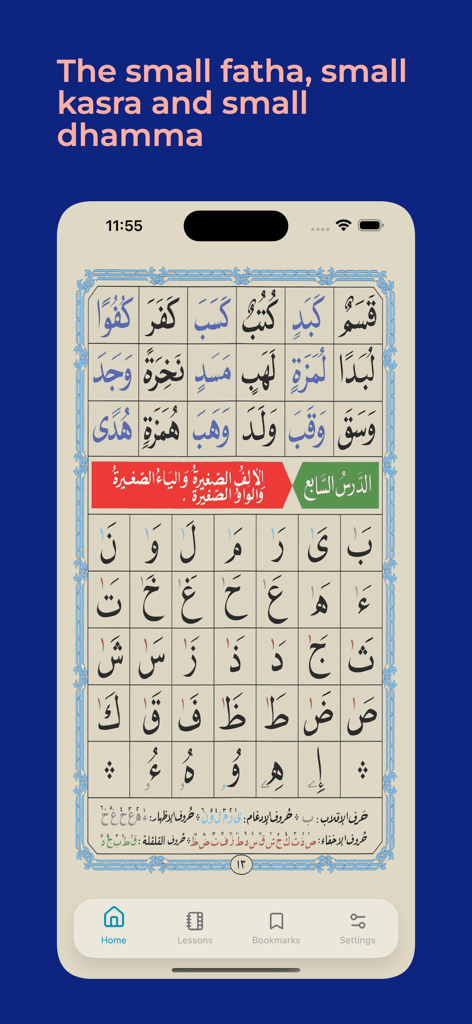 The small fatha, small
kasra and small
dhamma
11:55
قَسَمٌ كَبَدٍ كُتُبٌ كَسَبَ كَفَرَ كُفُوًا
لُبَدًا لُمَزَةٍ لَهَبٍ مَسَدٍ نَخِرَةً وَجَدَ
وَسَقَ وَقَبَ وَلَدَ وَهَبَ هُمَزَةٍ هُدًى
الدَّرسُ السَّابع
الألِفُ الصَّغِيرَةُ وَاليَاءُ الصَّغِيرَةُ
وَالوَاوُ الصَّغِيرَة .
بٰ يٰ رٰ مٰ لٰ وٰ نٰ
ءٰ هٰ عٰ حٰ غٰ خٰ تٰ
ثٰ جٰ دٰ ذٰ زٰ سٰ شٰ
صٰ ضٰ طٰ ظٰ فٰ قٰ كٰ
إِۦ هِۦ وُۥ هُۥ ءُۥ
حَرف الإقلاب : ب حُروف الإدغام : ى ر م ل و ن حُروف الإظهار : ء ه ع ح غ خ
حُروف الإخفاء : ص ذ ث ك ج ش ق س د ط ز ف ت ض ظ حُروف القلقلة : ق ط ب ج د
١٣
Home Lessons Bookmarks Settings